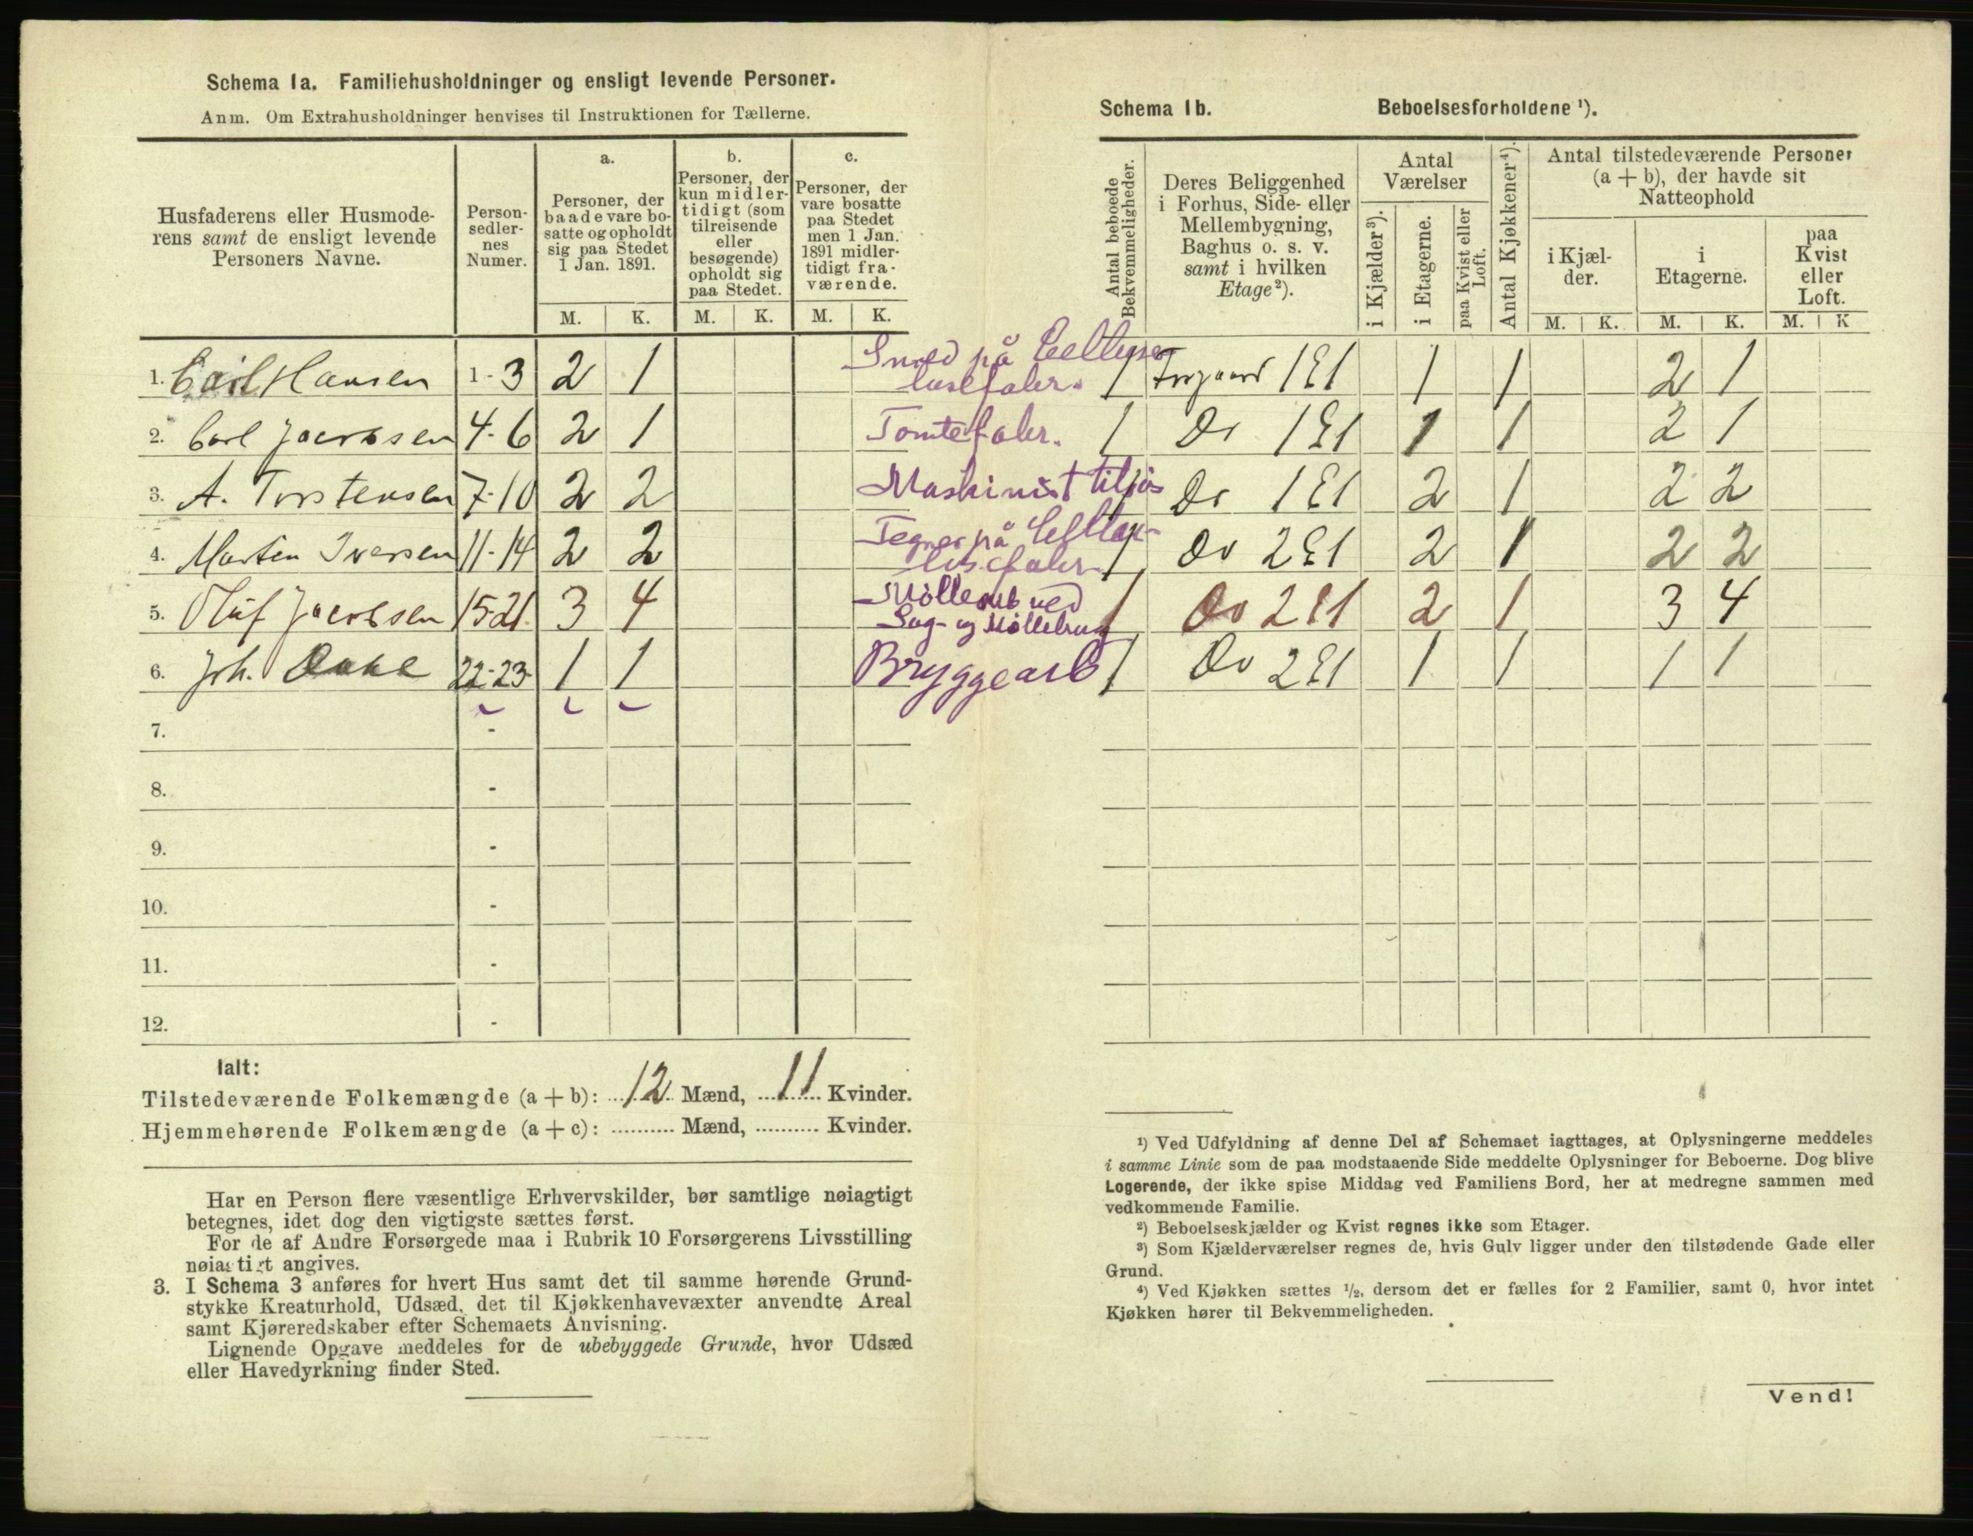 Schema 1a. Familiehusholdninger og ensligt levende Personer.
Anm. Om Extrahusholdninger henvises til Instruktionen for Tællerne.
Husfaderens eller Husmode-
rens samt de ensligt levende
Personers Navne.
Person-
sedler-
nes
Numer.
a.
Personer, der
baade vare bo-
satte og opholdt
sig paa Stedet
1 Jan. 1891.
b.
Personer, der
kun midler-
tidigt (som
tilreisende
eller
besøgende)
opholdt sig
paa Stedet.
c.
Personer, der
vare bosatte
paa Stedet
men 1 Jan.
1891 midler-
tidigt fra-
værende.
M. K. M. K. M. K.
1. Carl Hansen 1-3 2 1 Smed på Cellulose
fabr.
2. Carl Jacobsen 4-6 2 1 Tomtefabr.
3. A. Torstensen 7-10 2 2 Maskinist tiljøs
4. Martin Iversen 11-14 2 2 på
fabr.
5. Oluf Jacobsen 15-21 3 4 Møllearb ved
Sag- og Møllebrug
6. Joh. Dahl 22-23 1 1 Bryggearb
7. -
8. -
9. -
10. -
11. -
12. -
Ialt:
Tilstedeværende Folkemængde (a + b): 12 Mænd, 11 Kvinder.
Hjemmehørende Folkemængde (a + c): .......... Mænd, .......... Kvinder.
Har en Person flere væsentlige Erhvervskilder, bør samtlige nøiagtigt
betegnes, idet dog den vigtigste sættes først.
For de af Andre Forsørgede maa i Rubrik 10 Forsørgerens Livsstilling
nøiagtigt angives.
3. I Schema 3 anføres for hvert Hus samt det til samme hørende Grund-
stykke Kreaturhold, Udsæd, det til Kjøkkenhavevæxter anvendte Areal
samt Kjøreredskaber efter Schemaets Anvisning.
Lignende Opgave meddeles for de ubebyggede Grunde, hvor Udsæd
eller Havedyrkning finder Sted.
Schema 1b. Beboelsesforholdene ¹).
Antal beboede
Bekvemmeligheder.
Deres Beliggenhed
i Forhus, Side- eller
Mellembygning,
Baghus o. s. v.
samt i hvilken
Etage ²).
Antal
Værelser
i Kjælder ³).
i Etagerne.
paa Kvist eller
Loft.
Antal Kjøkkener ⁴).
Antal tilstedeværende Personer
(a + b), der havde sit
Natteophold
i Kjæl-
der.
i
Etagerne.
paa
Kvist
eller
Loft.
M. K. M. K. M. K
1 Forgaard 1 E 1 1 1 2 1
1 Do 1 E 1 1 1 2 1
1 Do 1 E 1 2 1 2 2
1 Do 2 E 1 2 1 2 2
1 Do 2 E 1 2 1 3 4
1 Do 2 E 1 1 1 1 1
¹) Ved Udfyldning af denne Del af Schemaet iagttages, at Oplysningerne meddeles
i samme Linie som de paa modstaaende Side meddelte Oplysninger for Beboerne. Dog blive
Logerende, der ikke spise Middag ved Familiens Bord, her at medregne sammen med
vedkommende Familie.
²) Beboelseskjælder og Kvist regnes ikke som Etager.
³) Som Kjælderværelser regnes de, hvis Gulv ligger under den tilstødende Gade eller
Grund.
⁴) Ved Kjøkken sættes ¹/₂, dersom det er fælles for 2 Familier, samt 0, hvor intet
Kjøkken hører til Bekvemmeligheden.
Vend!